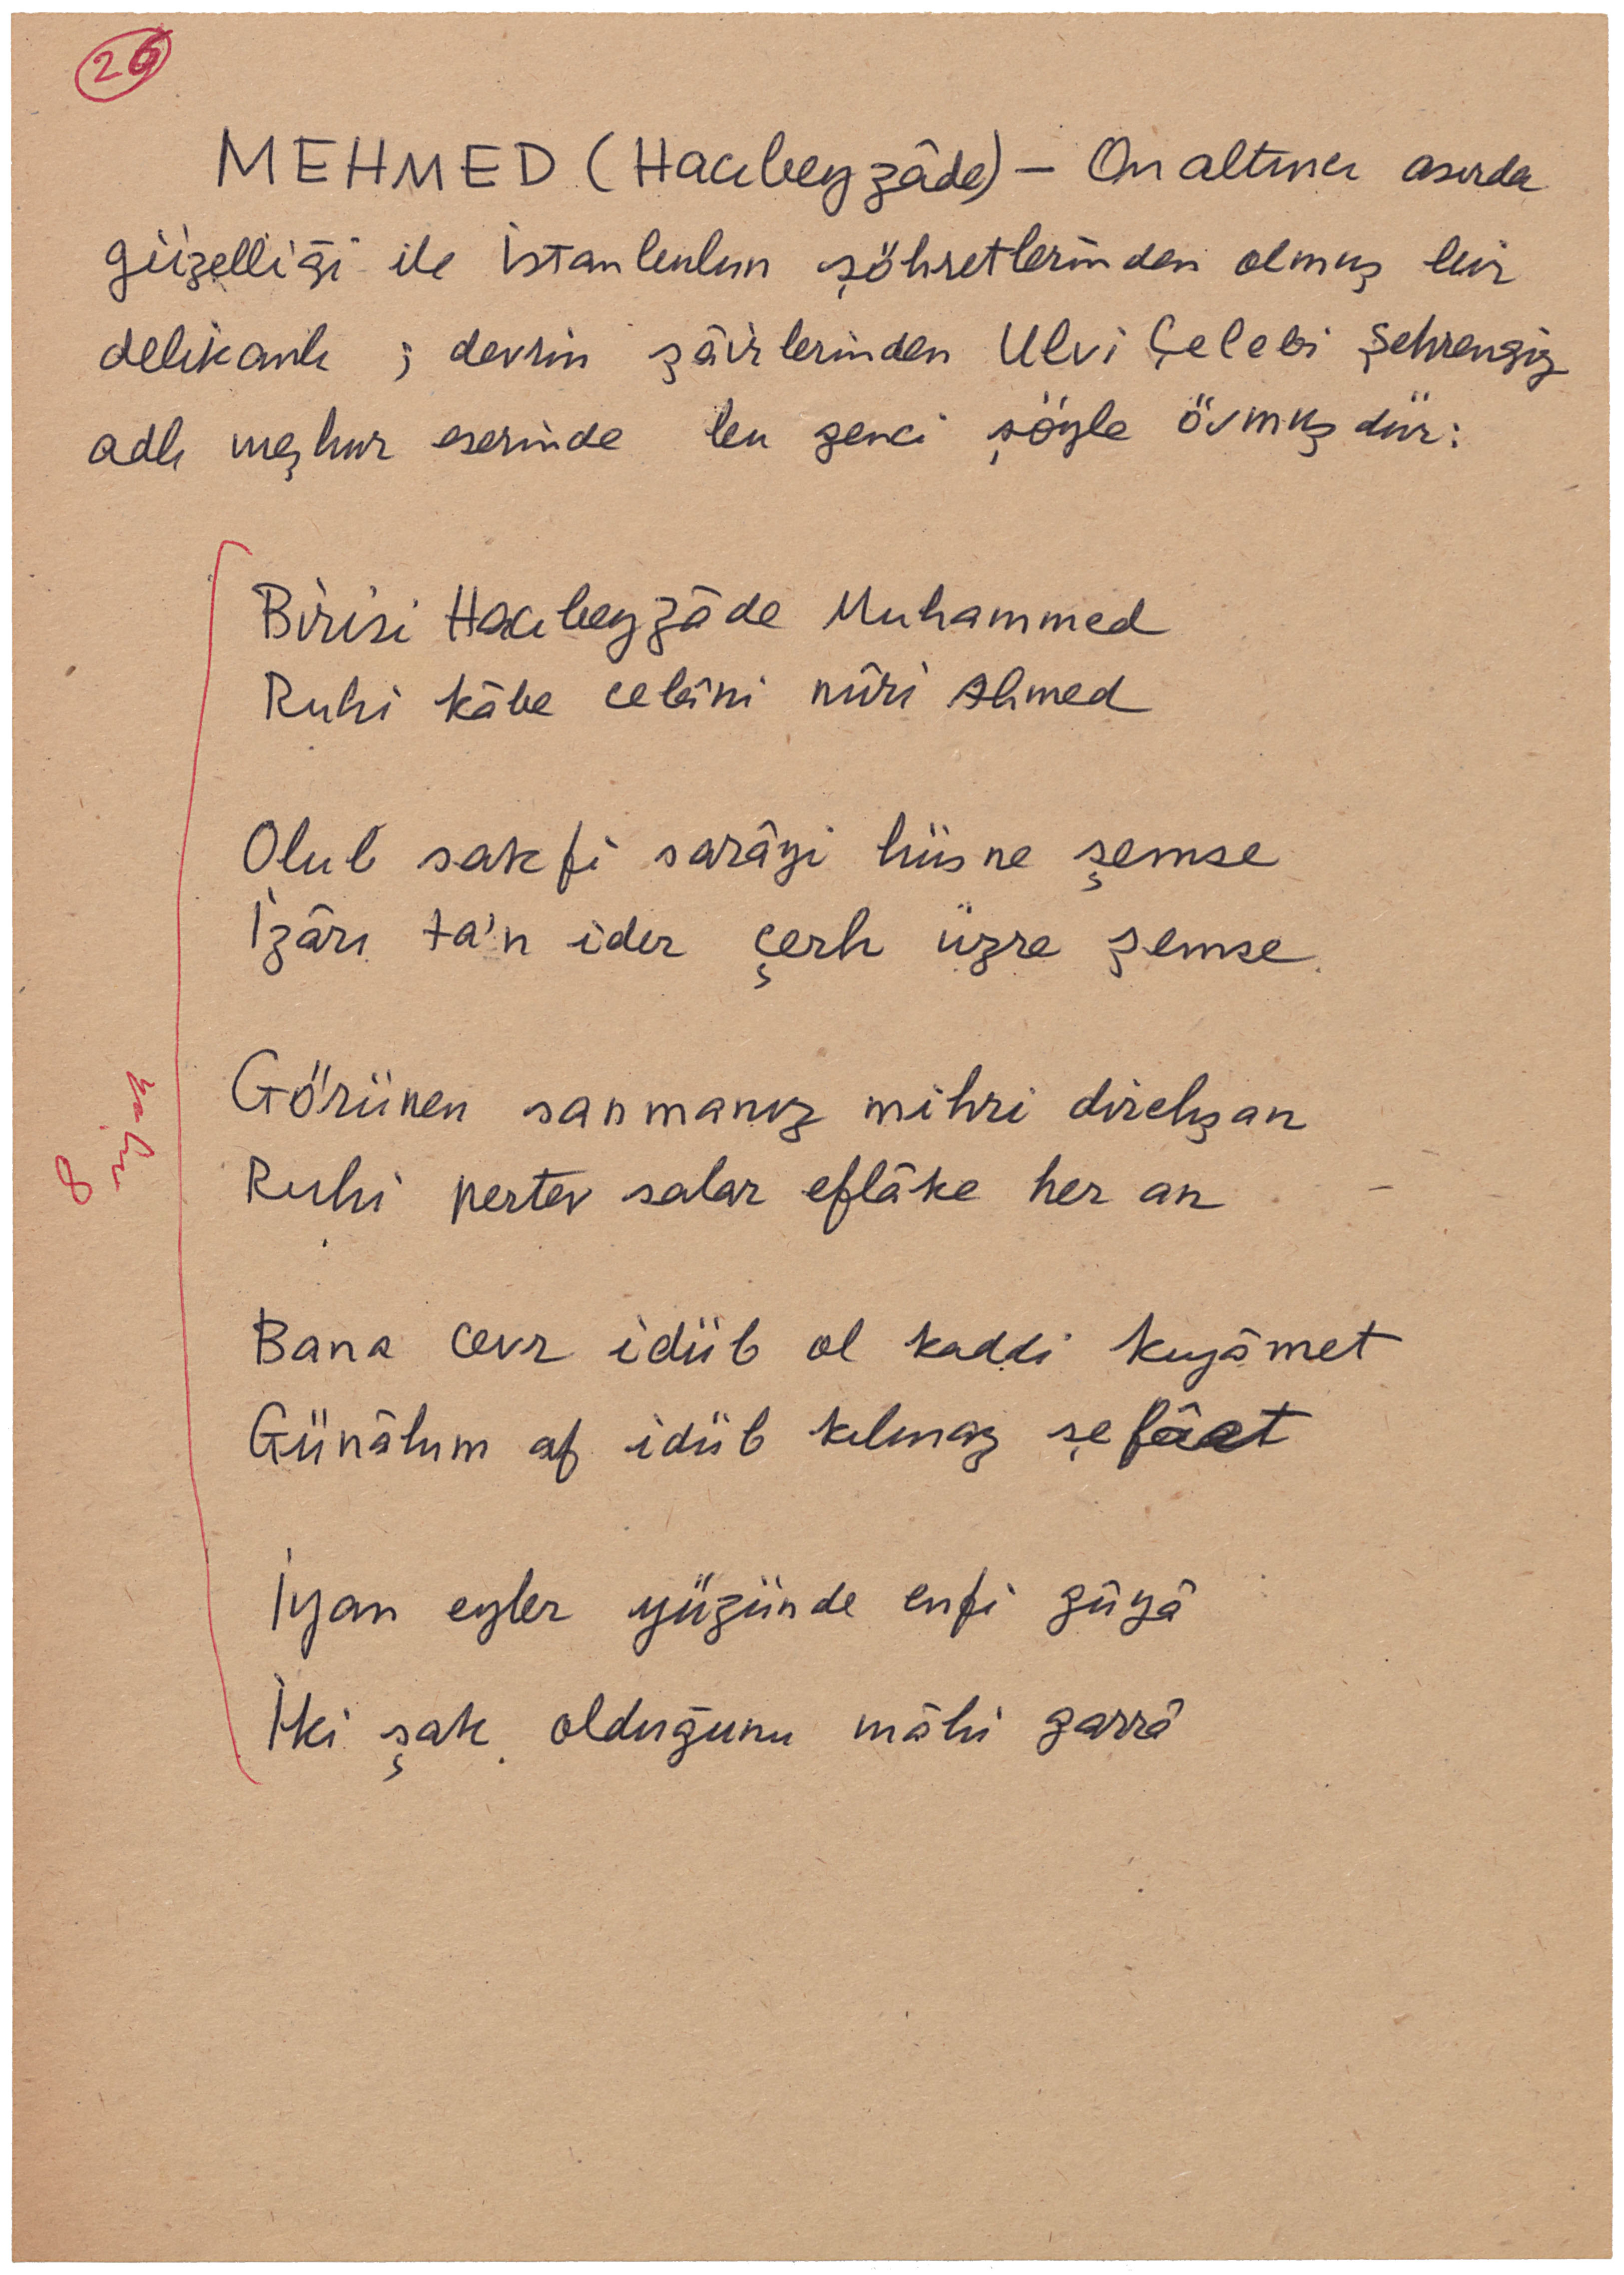 26
MEHMED (Hacıbeyzâde) — On altıncı asırda
güzelliği ile İstanbulun şöhretlerinden olmuş bir
delikanlı ; devrin şâirlerinden Ulvi Çelebi Şehrengiz
adlı meşhur eserinde bu genci şöyle övmüşdür:
Birisi Hacıbeyzâde Muhammed
Ruhi kâbe cebîni nûri Ahmed
Olub sakfi sarâyi hüsne şemse
İzârı ta'n ider çerh üzre şemse
Görünen sanmanız mihri dirahşan
Ruhi pertev salar eflâke her an
8 siyah
Bana cevr idüb ol kaddi kıyâmet
Günâhım af idüb kılmaz şefâat
İyan eyler yüzünde enfi gûyâ
İki şak olduğunu mâhi garrâ